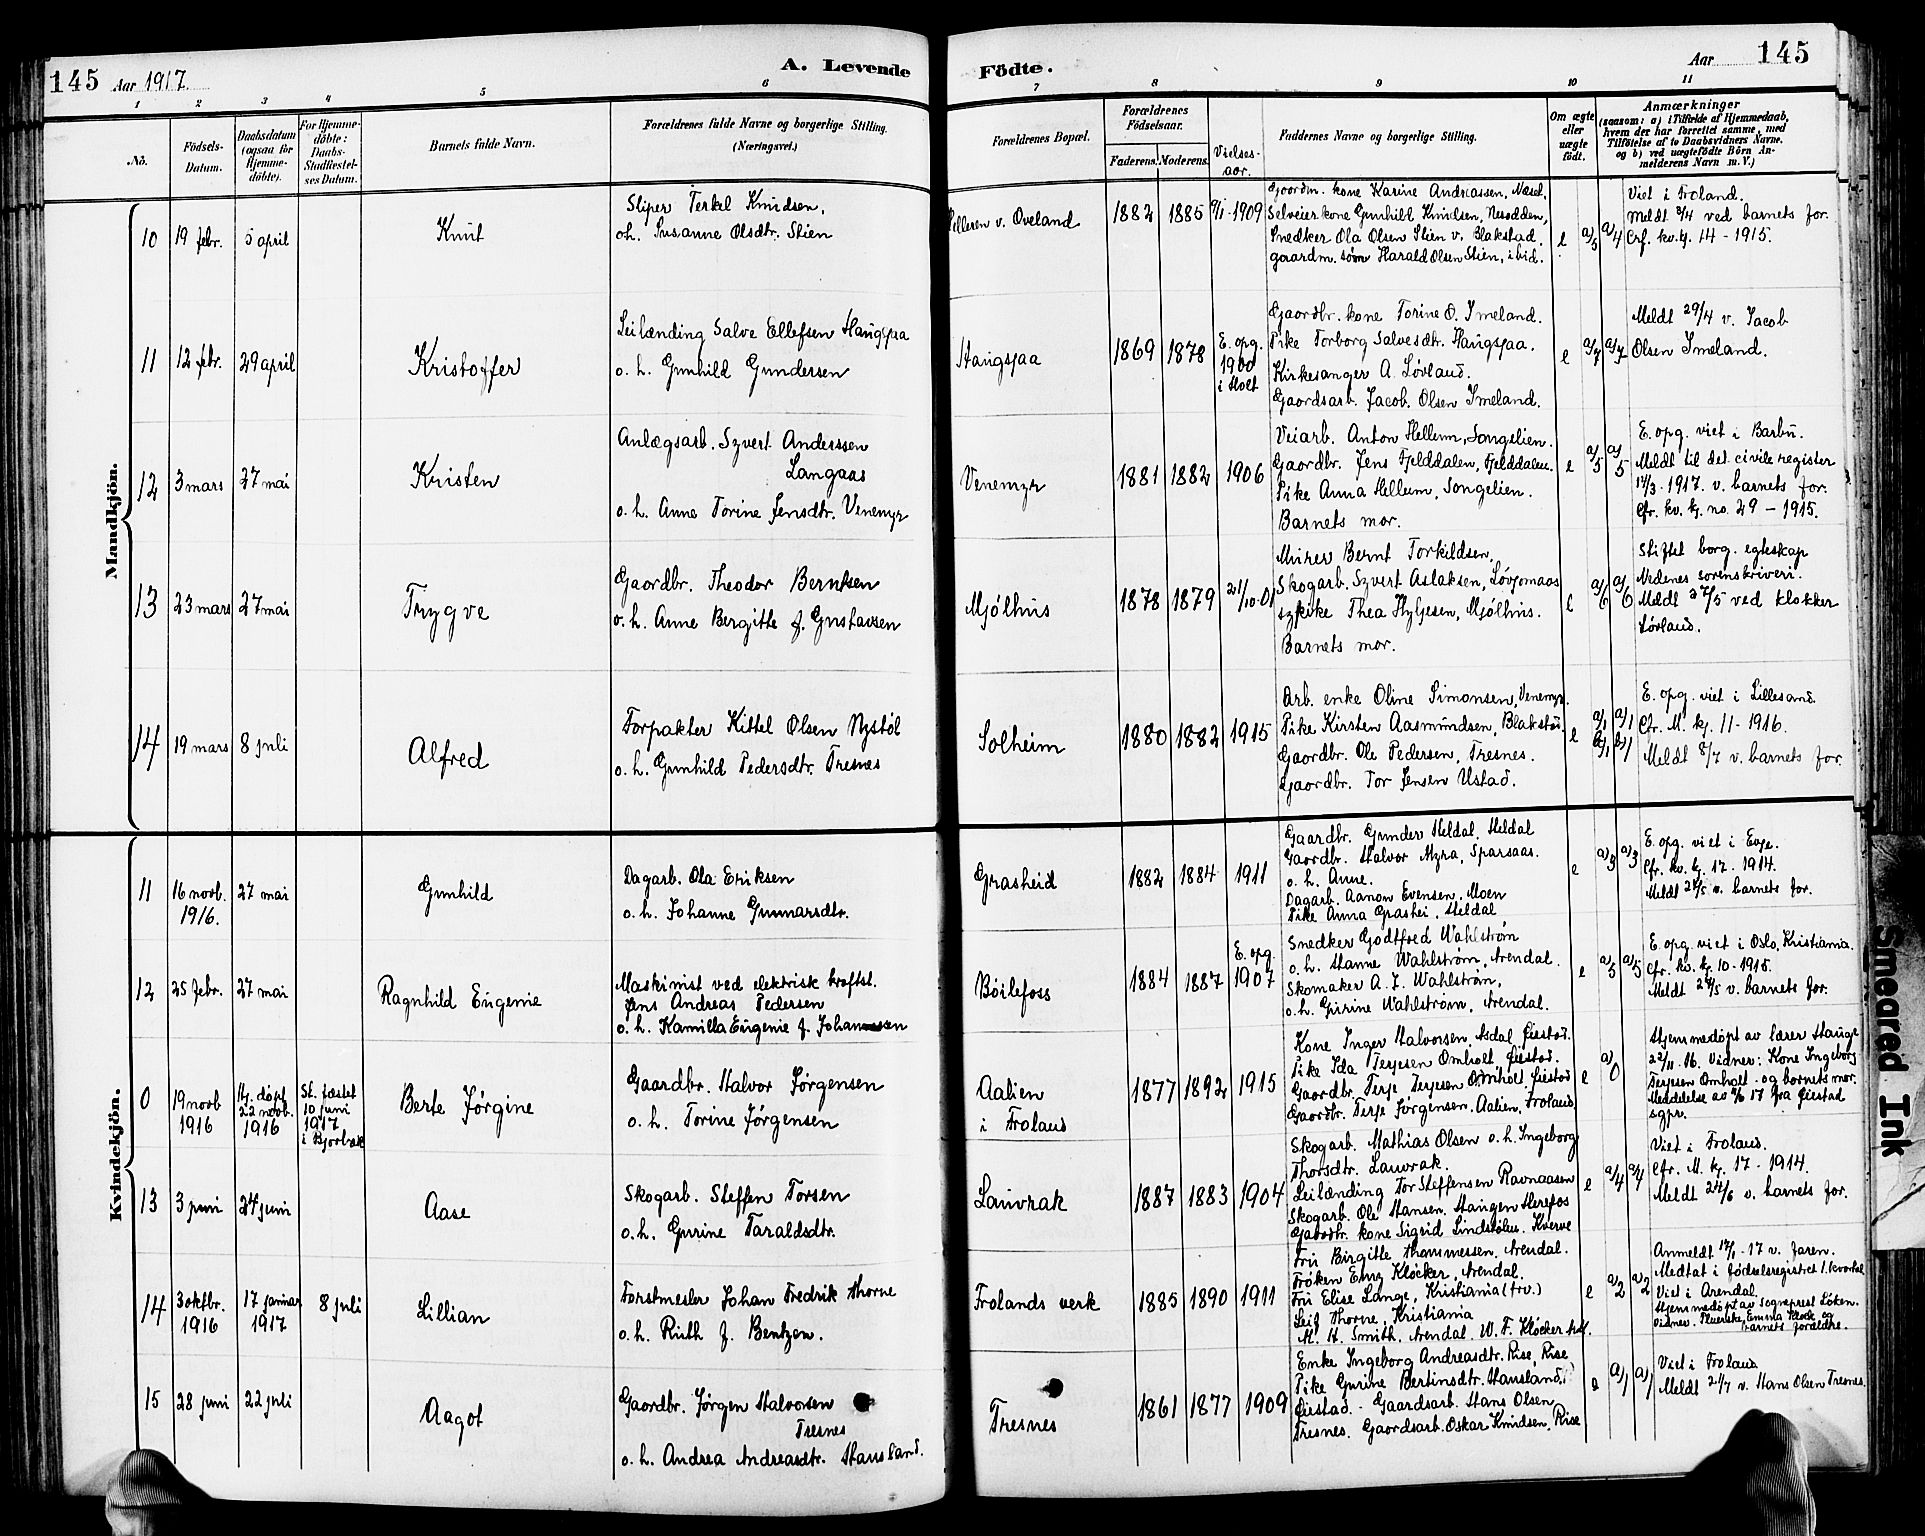 145 Aar 1917.
A. Levende
Födte.
Aar 145
1 2 3 4 5 6 7 8 9 10 11
No.
Födsels-
Datum.
Daabsdatum
(ogsaa for
Hjemme-
döbte).
For Hjemme-
döbte:
Daabs-
Stadfæstel-
ses Datum.
Barnets fulde Navn.
Forældrenes fulde Navne og borgerlige Stilling.
(Næringsvei.)
Forældrenes Bopæl.
Forældrenes
Födselsaar.
Faderens. Moderens.
Vielses-
aar.
Faddernes Navne og borgerlige Stilling.
Om ægte
eller
uægte
födt.
Anmærkninger
(saasom: a) i Tilfælde af Hjemmedaab,
hvem der har forrettet samme, med
Tilföielse af to Daabsvidners Navne,
og b) ved uægtefödte Börn An-
melderens Navn m. V.)
Mandkjön.
10 19 febr. 5 april
Knut
Sliper Terkel Knudsen,
o.h. Susanne Olsdtr. Stien
v. Oveland
1882 1885 1909
Gaardm. kone Karine Andreassen, Næsel,
Selveierkone Gunhild Knudsen, Nesodden,
Snedker Ola Olsen Stien v. Blakstad.
gaardm. søn Harald Olsen Stien, ibid.
e a/5 a/4
Viet i Froland.
Meldt 3/4 ved barnets far.
Cfr. kv. kj. 14 - 1915.
11 12 febr. 29 april
Kristoffer
Leilænding Salve Ellefsen Haugsjaa
o. h. Gunhild Gundersen
Haugsjaa
1869 1878
E. opg.
1900
i Holt
Gaardbr. kone Torine O. Imeland.
Pike Torborg Salvesdtr. Haugsjaa.
Kirkesanger A. Løvland.
Gaardsarb. Jacob Olsen Imeland.
e a/7 a/7
Meldt 29/4 v. Jacob
Olsen Imeland.
12 3 mars 27 mai
Kristen
Anlægsarb. Syvert Anderssen
Langaas
o. h. Anne Torine Jensdtr. Venemyr
Venemyr
1881 1882 1906
Veiarb. Anton Hellem, Songelien.
Gaardbr. Jens Fjelddalen, Fjelddalen.
Pike Anna Hellem, Songelien.
Barnets mor.
e a/5 a/5
E. opg. viet i Barbu.
Meldt til det civile register
14/3 - 1917. v. barnets far.
Cfr. kv. kj. no. 29 - 1915.
13 23 mars 27 mai
Trygve
Gaardbr. Theodor Berntsen
o. h. Anne Bergitte f. Gustavsen
Mjølhus
1878 1879 21/10-01
Murer Bernt Torkildsen,
Skogarb. Syvert Aslaksen, Løvjomaas
sypike Thea Hylgesen, Mjølhus.
Barnets mor.
e a/6 a/6
Stiftet borg. egteskap
Nedenes sorenskriveri.
Meldt 27/5 ved klokker
Løvland.
14 19 mars 8 juli
Alfred
Forpakter Kittel Olsen Nystøl
o. h. Gunhild Pedersdtr. Tresnes
Solheim
1880 1882 1915
Arb. enke Oline Simonsen, Venemyr.
Pike Kirsten Aasmundsen, Blakstad.
Gaardbr. Ole Pedersen, Tresnes.
Gaardbr. Tor Jensen Ustad.
e a/1 a/1
b/1 b/1
E. opg. viet i Lillesand.
Cfr. M. kj. 11 - 1916.
Meldt 8/7 v. barnets far
Kvindekjön.
11 16 novb. 27 mai
1916.
Gunhild
Dagarb. Ola Eriksen
o. h. Johanne Gunnarsdtr.
Grasheid
1882 1884 1911
Gaardbr. Gunder Heldal, Heldal
Gaardbr. Halvor Myra, Sparsaas.
o. h. Anne.
Dagarb. Aanon Evensen, Moen
Pike Anna Grashei, Heldal
e a/3 a/3
E. opg. viet i Evje.
Cfr. kv. kj. 17 - 1914.
Meldt 27/5 v. barnets far.
12 25 febr. 27 mai
Ragnhild Eugenie
Maskinist ved elektrisk kraftst.
Jens Andreas Pedersen
o. h. Kamilla Eugenie f. Johannessen
Böilefoss
1884 1887
E. opg.
1907
Snedker Godtfred Wahlstrøm
o. h. Hanne Wahlstrøm, Arendal.
Skomaker A. J. Wahlstrøm,
o. h. Gurine Wahlstrøm, Arendal.
e a/5 a/5
E. opg. viet i Oslo, Kristiania.
Cfr. kv. kj. 10 - 1915.
Meldt 27/5 v. barnets far.
0 19 novb
1916
Hj. døpt
22 novb.
1916
St. fæstet
10 juni
1917
i Bjorbæk
Berte Jørgine
Gaardbr. Halvor Jørgensen
o. h. Torine Jørgensen
Aalien
i Froland
1877 1892 1915
Kone Inger Halvorsen, Asdal, Øiestad.
Pike Ida Terjesen Omholt Øiestad.
Gaardbr. Terje Terjesen Omholt Øiestad
Gaardbr. Terje Jørgensen, Aalien, Froland.
e a/0
Hjemmedøpt av lærer Hauge
22/11 16. Vidner: Kone Ingeborg
Terjesen Omholt - og barnets mor.
Meddelelse av 17 fra Øiestad
sgpr.
13 3 juni 24 juni
Aase
Skogarb. Steffen Torsen
o. h. Gurine Taraldsdtr.
Lauvrak
1887 1883 1904
Skogarb. Mathias Olsen o. h. Ingeborg
Thorsdtr. Lauvrak.
Leilænding Tor Steffensen Ravnaasen
Skogarb. Ole Hansen. Haugen Herefos
Gaardbr. kone Sigrid Lindstølen. Kverve
e a/4 a/4
Viet i Froland.
Cfr. M. kj. 17 - 1914.
Meldt 24/6 v. barnets far.
14 3 oktbr. 17 januar 8 juli
1916 1917
Lillian
Forstmester Johan Fredrik Thorne
o. h. Ruth f. Bentzen.
Frolands verk
1885 1890 1911
Fru Birgitte Thommessen. Arendal.
Frøken Emy Kløcker, Arendal.
Fru Elise Lange, Kristiania (frv.)
Leif Thorne, Kristiania
M. H. Smith, Arendal W. F. Kløcker
e a/2 a/2
Anmeldt 17/1 - 17 v. faren.
Medtat i fødselsregistret 1. kvartal
Viet i Arendal.
Hjemmedøpt av Sogneprest Løken.
Vidner. Emma Kløck og
barnets forældre.
15 28 juni 22 juli
Aagot
Gaardbr. Jørgen Halvorsen
Tresnes
o. h. Andrea Andreasdtr. Hausland.
Tresnes
1861 1877 1909
Enke Ingeborg Andreasdtr. Rise, Rise
Pike Gurine Bertinsdtr. Hausland,
Øiestad. - Gaardsarb. Hans Olsen
Tresnes. Gaardsarb. Oskar Knudsen, Rise
e a/1 a/1
Viet i Froland
Meldt 22/7 v. Hans Olsen Tresnes.
Smeared Ink